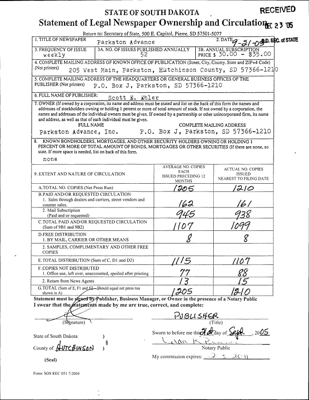 STATE OF SOUTH DAKOTA
RECEIVED
Statement of Legal Newspaper Ownership and Circulation
23 '05
Return to: Secretary of State, 500 E. Capitol, Pierre, SD 57501-5077
SEC. OF STATE
1. TITLE OF NEWSPAPER
Parkston Advance
2. DATE
9-21-05
3. FREQUENCY OF ISSUE
weekly
3A. NO. OF ISSUES PUBLISHED ANNUALLY
52
3B. ANNUAL SUBSCRIPTION
PRICE $ 30.00 - $35.00
4. COMPLETE MAILING ADDRESS OF KNOWN OFFICE OF PUBLICATION (Street, City, County, State and ZIP+4 Code)
(Not printers)
205 West Main, Parkston, Hutchinson County, SD 57366-1210
5. COMPLETE MAILING ADDRESS OF THE HEADQUARTERS OR GENERAL BUSINESS OFFICES OF THE
PUBLISHER (Not printer)
P.O. Box J, Parkston, SD 57366-1210
6. FULL NAME OF PUBLISHER:
Scott E. Ehler
7. OWNER (If owned by a corporation, its name and address must be stated and also the names and
addresses of stockholders owning or holding 1 percent or more of total amount of stock. If not owned by a corporation, the
names and addresses of the individual owners must be given. If owned by a partnership or other unincorporated firm, its name
and address, as well as that of each individual must be given.
FULL NAME
COMPLETE MAILING ADDRESS
Parkston Advance, Inc.
P.O. Box J, Parkston, SD 57366-1210
8. KNOWN BONDHOLDERS, MORTGAGES, AND OTHER SECURITY HOLDERS OWNING OR HOLDING 1
PERCENT OR MORE OF TOTAL AMOUNT OF BONDS, MORTGAGES OR OTHER SECURITIES (If there are none, so
state. If more space is needed, list on back of this form.
none
9. EXTENT AND NATURE OF CIRCULATION
AVERAGE NO. COPIES
EACH
ISSUES PRECEDING 12
MONTHS
ACTUAL NO. COPIES
ISSUED
NEAREST TO FILING DATE
A. TOTAL NO. COPIES (Net Press Run)
1205
1210
B. PAID AND/OR REQUESTED CIRCULATION
1. Sales through dealers and carriers, street vendors and
counter sales.
162
161
2. Mail Subscription
(Paid and/or requested)
945
938
C. TOTAL PAID AND/OR REQUESTED CIRCULATION
(Sum of 9B1 and 9B2)
1107
1099
D. FREE DISTRIBUTION
1. BY MAIL, CARRIER OR OTHER MEANS
8
8
2. SAMPLES, COMPLIMENTARY AND OTHER FREE
COPIES
E. TOTAL DISTRIBUTION (Sum of C, D1 and D2)
1115
1107
F. COPIES NOT DISTRIBUTED
1. Office use, left over, unaccounted, spoiled after printing
77
88
2. Return from News Agents
13
15
G. TOTAL (Sum of E, F1 and F2--Should equal net press run
shown in A)
1205
1210
Statement must be signed by Publisher, Business Manager, or Owner in the presence of a Notary Public
I swear that the statements made by me are true, correct, and complete:
PUBLISHER
(Signature)
(Title)
State of South Dakota )
Sworn to before me this 21 day of Sept 2005
County of HUTCHINSON )
Notary Public
(Seal)
My commission expires
Form: SOS REC 051 7/2004